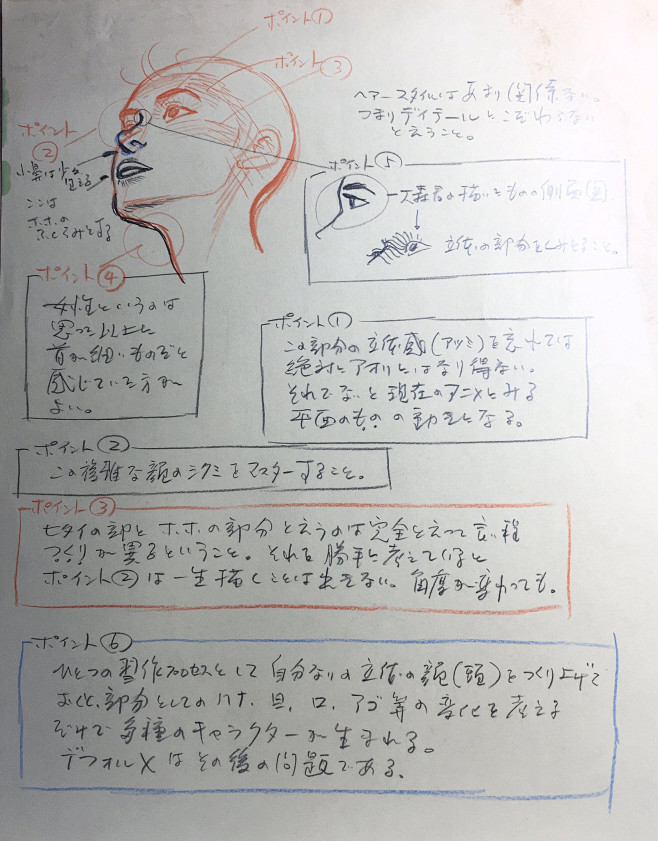 ポイント①
ポイント③
ヘアースタイルはあまり関係ない。
つまりディテールにこだわらない
と云うこと。
ポイント
②
小鼻は少し
見える
ここは
ホホの
ふくらみとする
ポイント⑤
大森君の描いたものの側面図
立体の部分をしみとること。
ポイント④
女性というのは
思った以上に
首が細いものだと
感じていた方が
よい。
ポイント①
この部分の立体感(アツミ)を忘れては
絶対にアオリにはなり得ない。
それでないと現在のアニメにみる
平面のものの動きとなる。
ポイント②
この複雑な顔のシクミをマスターすること。
ポイント③
ヒタイの部とホホの部分と云うのは完全と云って良い程
つくりが異るということ。それを勝手に考えていると
ポイント②は一生描くことは出きない。角度が変わっても。
ポイント⑥
ひとつの習作プロセスとして自分なりの立体の顔(頭)をつくり上げて
おくと、部分としてのハナ、目、口、アゴ等の変化を考える
だけで多種のキャラクターが生まれる。
デフォルメはその後の問題である。